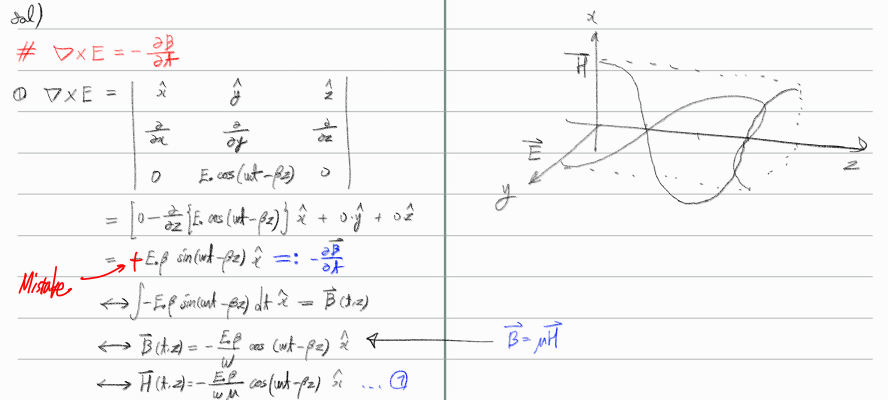 sol)
# ∇×E = -∂B/∂t
① ∇×E = | x̂ ŷ ẑ |
| ∂/∂x ∂/∂y ∂/∂z |
| 0 E₀cos(ωt-βz) 0 |
= [0 - ∂/∂z{E₀ cos(ωt-βz)}] x̂ + 0·ŷ + 0ẑ
= +E₀β sin(ωt-βz) x̂ =: -∂B⃗/∂t
Mistake.
↔ ∫-E₀β sin(ωt-βz) dt x̂ = B⃗(t,z)
↔ B⃗(t,z) = -E₀β/ω cos(ωt-βz) x̂
B⃗=μH⃗
↔ H⃗(t,z) = -E₀β/ωμ cos(ωt-βz) x̂ ... ①
x
H⃗
E⃗
y
z